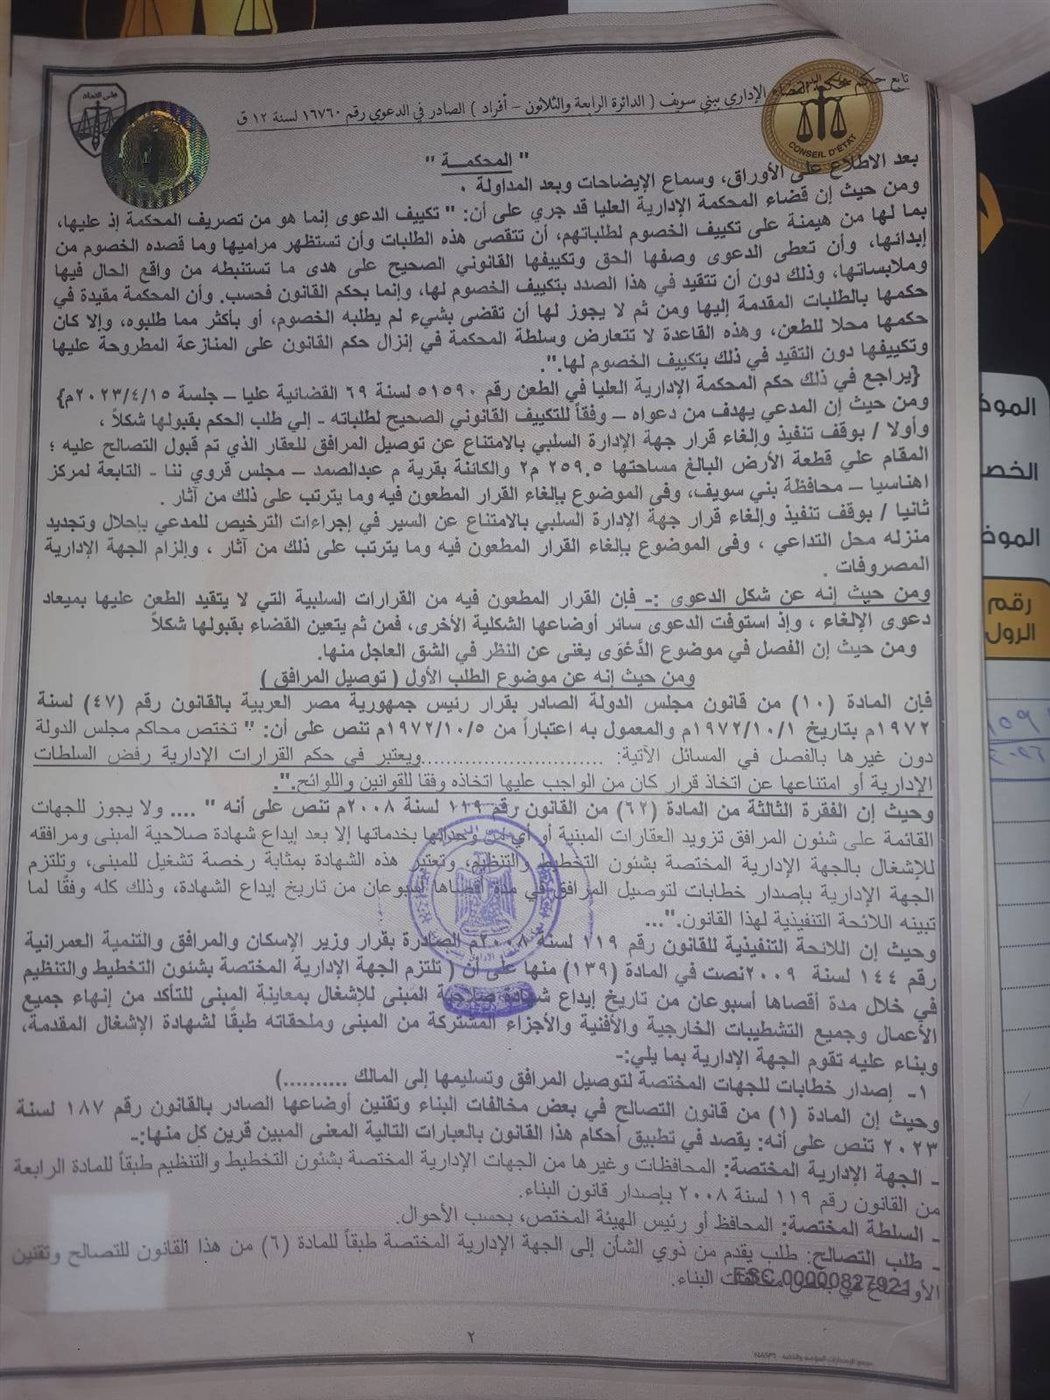 تابع حكم محكمة القضاء الإداري ببني سويف ( الدائرة الرابعة والثلاثون – أفراد ) الصادر في الدعوي رقم ١٦٧٦٠ لسنة ١٢ ق
CONSEIL D'ETAT
" المحكمـــة "
بعد الاطلاع على الأوراق، وسماع الإيضاحات وبعد المداولة .
ومن حيث إن قضاء المحكمة الإدارية العليا قد جري على أن: " تكييف الدعوى إنما هو من تصريف المحكمة إذ عليها،
بما لها من هيمنة على تكييف الخصوم لطلباتهم، أن تتقصى هذه الطلبات وأن تستظهر مراميها وما قصده الخصوم من
إبدائها، وأن تعطى الدعوى وصفها الحق وتكييفها القانوني الصحيح على هدى ما تستنبطه من واقع الحال فيها
وملابساتها، وذلك دون أن تتقيد في هذا الصدد بتكييف الخصوم لها، وإنما بحكم القانون فحسب. وأن المحكمة مقيدة في
حكمها بالطلبات المقدمة إليها ومن ثم لا يجوز لها أن تقضى بشيء لم يطلبه الخصوم، أو بأكثر مما طلبوه، وإلا كان
حكمها محلا للطعن، وهذه القاعدة لا تتعارض وسلطة المحكمة في إنزال حكم القانون على المنازعة المطروحة عليها
وتكييفها دون التقيد في ذلك بتكييف الخصوم لها.".
{يراجع في ذلك حكم المحكمة الإدارية العليا في الطعن رقم ٥١٥٩٠ لسنة ٦٩ القضائية عليا – جلسة ٢٠٢٣/٤/١٥م}
ومن حيث إن المدعي يهدف من دعواه – وفقاً للتكييف القانوني الصحيح لطلباته - إلي طلب الحكم بقبولها شكلاً ،
وأولا / بوقف تنفيذ وإلغاء قرار جهة الإدارة السلبي بالامتناع عن توصيل المرافق للعقار الذي تم قبول التصالح عليه ؛
المقام علي قطعة الأرض البالغ مساحتها ٢٥٩.٥ م٢ والكائنة بقرية م عبدالصمد – مجلس قروي ننا - التابعة لمركز
اهناسيا – محافظة بني سويف، وفى الموضوع بإلغاء القرار المطعون فيه وما يترتب على ذلك من آثار .
ثانيا / بوقف تنفيذ وإلغاء قرار جهة الإدارة السلبي بالامتناع عن السير في إجراءات الترخيص للمدعي بإحلال وتجديد
منزله محل التداعي ، وفى الموضوع بإلغاء القرار المطعون فيه وما يترتب على ذلك من آثار ، وإلزام الجهة الإدارية
المصروفات .
ومن حيث إنه عن شكل الدعوى :- فإن القرار المطعون فيه من القرارات السلبية التي لا يتقيد الطعن عليها بميعاد
دعوى الإلغاء ، وإذ استوفت الدعوى سائر أوضاعها الشكلية الأخرى، فمن ثم يتعين القضاء بقبولها شكلاً
ومن حيث إن الفصل في موضوع الدَّعْوَى يغنى عن النظر في الشق العاجل منها.
ومن حيث إنه عن موضوع الطلب الأول ( توصيل المرافق )
فإن المادة (١٠) من قانون مجلس الدولة الصادر بقرار رئيس جمهورية مصر العربية بالقانون رقم (٤٧) لسنة
١٩٧٢م بتاريخ ١٩٧٢/١٠/١م والمعمول به اعتباراً من ١٩٧٢/١٠/٥م تنص على أن: " تختص محاكم مجلس الدولة
دون غيرها بالفصل في المسائل الآتية: ..............................ويعتبر في حكم القرارات الإدارية رفض السلطات
الإدارية أو امتناعها عن اتخاذ قرار كان من الواجب عليها اتخاذه وفقا للقوانين واللوائح.".
وحيث إن الفقرة الثالثة من المادة (٦٢) من القانون رقم ١١٩ لسنة ٢٠٠٨م تنص على أنه " .... ولا يجوز للجهات
القائمة على شئون المرافق تزويد العقارات المبنية أو أي من وحداتها بخدماتها إلا بعد إيداع شهادة صلاحية المبنى ومرافقه
للإشغال بالجهة الإدارية المختصة بشئون التخطيط والتنظيم، وتعتبر هذه الشهادة بمثابة رخصة تشغيل للمبنى، وتلتزم
الجهة الإدارية بإصدار خطابات لتوصيل المرافق في مدة أقصاها أسبوعان من تاريخ إيداع الشهادة، وذلك كله وفقًا لما
تبينه اللائحة التنفيذية لهذا القانون."...
وحيث إن اللائحة التنفيذية للقانون رقم ١١٩ لسنة ٢٠٠٨م الصادرة بقرار وزير الإسكان والمرافق والتنمية العمرانية
رقم ١٤٤ لسنة ٢٠٠٩ نصت في المادة (١٣٩) منها على أن ( تلتزم الجهة الإدارية المختصة بشئون التخطيط والتنظيم
في خلال مدة أقصاها أسبوعان من تاريخ إيداع شهادة صلاحية المبنى للإشغال بمعاينة المبنى للتأكد من إنهاء جميع
الأعمال وجميع التشطيبات الخارجية والأفنية والأجزاء المشتركة من المبنى وملحقاته طبقًا لشهادة الإشغال المقدمة،
وبناء عليه تقوم الجهة الإدارية بما يلي:-
١- إصدار خطابات للجهات المختصة لتوصيل المرافق وتسليمها إلى المالك ..........)
وحيث إن المادة (١) من قانون التصالح في بعض مخالفات البناء وتقنين أوضاعها الصادر بالقانون رقم ١٨٧ لسنة
٢٠٢٣ تنص على أنه: يقصد في تطبيق أحكام هذا القانون بالعبارات التالية المعنى المبين قرين كل منها:-
- الجهة الإدارية المختصة: المحافظات وغيرها من الجهات الإدارية المختصة بشئون التخطيط والتنظيم طبقاً للمادة الرابعة
من القانون رقم ١١٩ لسنة ٢٠٠٨ بإصدار قانون البناء.
- السلطة المختصة: المحافظ أو رئيس الهيئة المختص، بحسب الأحوال.
- طلب التصالح: طلب يقدم من ذوي الشأن إلى الجهة الإدارية المختصة طبقاً للمادة (٦) من هذا القانون للتصالح وتقنين
الأوضاع في بعض مخالفات البناء.
ESC 00000827921
٢
الموض
الخص
الموض
رقم
الرول